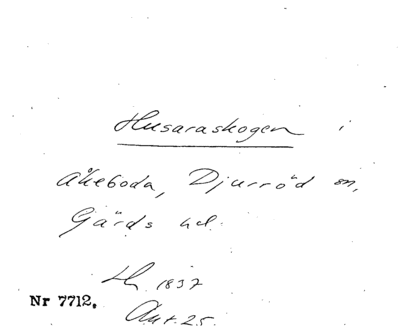 Husaraskogen i
Åkeboda, Djurröd sn,
Gärds hd.
1837
Nr 7712.
Akt. 25.